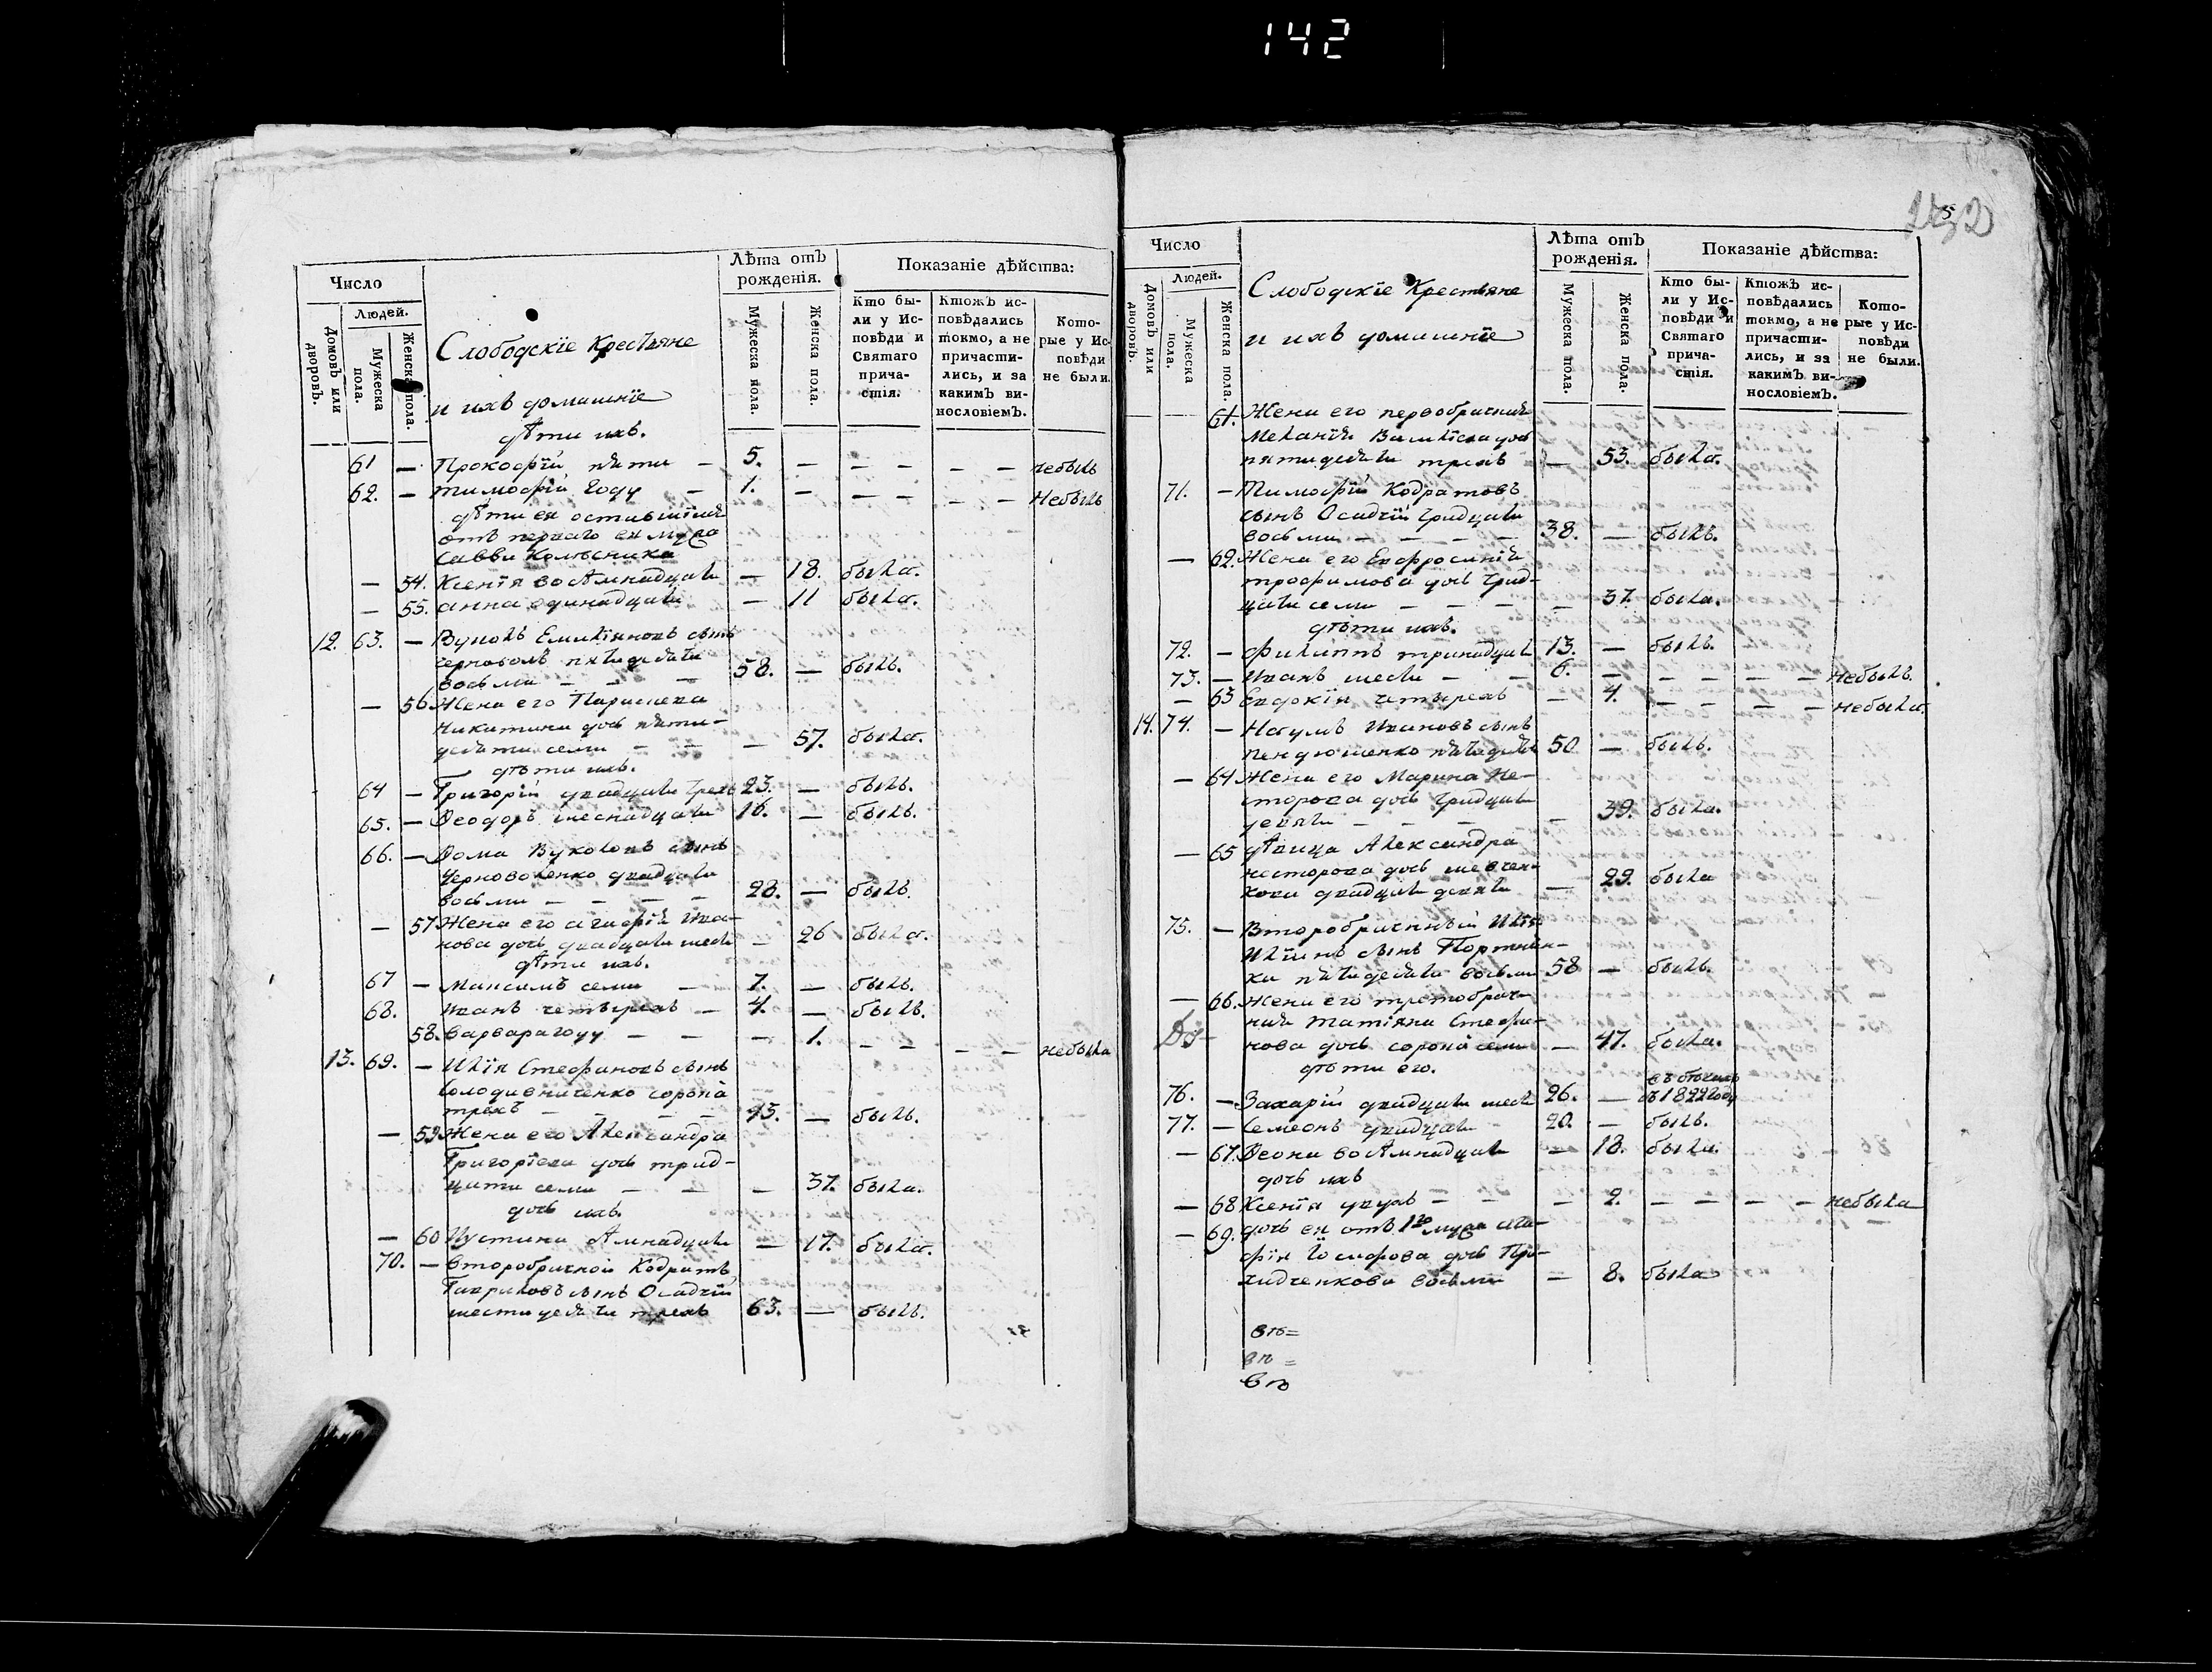 142
Число
Людей.
Домовъ или дворовъ.
Мужеска пола.
Женска пола.
Слободскіе Крестьяне
и ихъ домашніе
Лѣта отъ рожденія.
Мужеска пола.
Женска пола.
Показаніе дѣйства:
Кто бы-
ли у Ис-
повѣди и
Святаго
прича-
стія.
Ктожъ ис-
повѣдались
токмо, а не
причасти-
лись, и за
какимъ ви-
нословіемъ.
Кото-
рые у Ис-
повѣди
не были.
дѣти ихъ.
61 — Прокофій пяти — 5. — — — — — небылъ
62. — тимофій году — 1. — — — — — Небылъ
дѣти ея оставшіися
отъ перваго ея мужа
Саввы Колесника
— 54. Ксенія восѣмнадцати — 18. была.
— 55. анна одинадцати — 11 была.
12. 63. — Вуколъ Емиліяновъ сынъ
Черноволъ пятидесяти
восьми — — — 58. — былъ.
— 56 Жена его Параскева
Никитина дочь пяти-
десяти семи — — — 57. была.
дѣти ихъ.
64 — Григорій двадцати трехъ 23. — былъ.
65. — Феодоръ шеснадцати 16. — былъ.
66. — Фома Вуколовъ сынъ
Черноволенко двадцати
восьми — — — — 28. — былъ.
— 57 Жена его агафія Ива-
нова дочь двадцати шести — 26 была.
дѣти ихъ.
67 — Максимъ семи — 7. — былъ.
68. Иванъ четырехъ — 4. — былъ.
58. Варвара году — — — 1. — — — — небыла
13. 69. — Илія Стефановъ сынъ
сорока
трехъ — — — — 43. — былъ.
— 59 Жена его Александра
Григоріева дочь трид-
цати семи — — — 37. была.
дочь ихъ.
— 60 Іустина сѣмнадцати — 17. была.
70. — Второбрачной Кодратъ
Гавриловъ сынъ Осадчій
шестидесяти трехъ 63. — былъ.
Число
Людей.
Домовъ или дворовъ.
Мужеска пола.
Женска пола.
Слободскіе Крестьяне
и ихъ домашніе
Лѣта отъ рожденія.
Мужеска пола.
Женска пола.
Показаніе дѣйства:
Кто бы-
ли у Ис-
повѣди и
Святаго
прича-
стія.
Ктожъ ис-
повѣдались
токмо, а не
причасти-
лись, и за
какимъ ви-
нословіемъ.
Кото-
рые у Ис-
повѣди
не были.
61. Жена его первобрачная
Меланія Василіева дочь
пятидесяти трехъ — 53. была.
71. — Тимофій Кодратовъ
сынъ Осадчій тридцати
восьми — — — — 38. — былъ.
— 62. Жена его Евфросинія
трофимова дочь трид-
цати семи — — — — 37. была.
дѣти ихъ.
72. — Филиппъ тринадцати 13. — былъ.
73. — Иванъ шести — — 6. — — — — — небылъ.
— 63 Евдокія четырехъ — 4. — — — — небыла.
14. 74. — Наумъ Ивановъ сынъ
пятидесяти 50. — былъ.
— 64 Жена его Марина Не-
сторова дочь тридцати
девяти — — — — 39. была.
— 65 дѣвица Александра
несторова дочь шевчен-
кова двадцати девяти — 29. была
75. — Второбрачный Илія
Иліинъ сынъ
пятидесяти восьми 58 — былъ.
— 66. Жена его третобрач-
ная Татіяна Стефа-
нова дочь сорока семи — 47. была.
дѣти его.
76. — Захарій двадцати шести 26. — 1822 году
77. — Семеонъ двадцати 20. — былъ.
— 67. Феона восѣмнадцати — 18. была.
дочь ихъ
— 68 Ксенія двухъ — — — 2. — — — — небыла
— 69. дочь ея отъ 1го мужа
дочь
восьми — 8. была